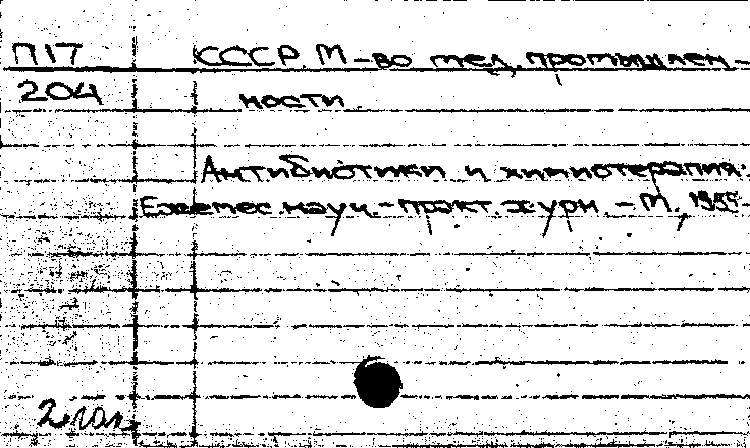 П17 СССР. М-во мед. промышлен-
204 ности.
Антибиотики и химиотерапия.
Ежемес. науч.-практ. журн. - М., 1956-